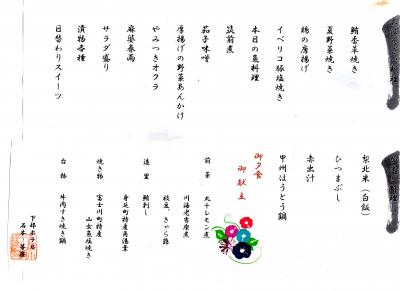 鮎香草焼き
夏野菜焼き
鶏の唐揚げ
イベリコ豚塩焼き
本日の魚料理
筑前煮
茄子味噌
厚揚げの野菜あんかけ
やみつきオクラ
麻婆春雨
サラダ盛り
漬物各種
日替わりスイーツ
梨北米(白飯)
ひつまぶし
赤出汁
甲州ほうとう鍋
御夕食
御献立
前菜 丸干レモン煮
川海老吉座煮
枝豆、きゃら蕗
造里 鮪刺し
身延町特産角湯葉
焼き物 富士川町特産
山女魚塩焼き
台物 牛肉すき焼き鍋
下部ホテル